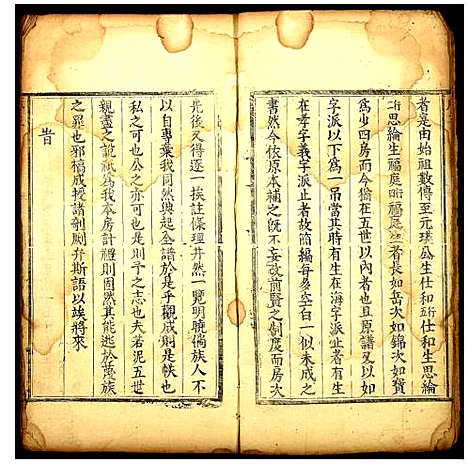 者是由始祖數傳至元璞公生仕和行五仕和生思綸
行二思綸生福庭行四福庭生者長如岳次如錦次如贊
為少四房而今猶在五世以內者也且原譜又以如
字派以下為一吊當其時有生在海字派止者有生
在孝字義字派止者故簡編每多空白一似未成之
書然今依原本補之既不妄改前賢之制度而房次
先後又得逐一挨註條理井然一覽明曉倘族人不
以自專棄我同然興起全譜於是乎觀成則是帙也
私之可也公之亦可也是則予之志也夫若泥五世
親盡之說祇為我本房計禮則固然其能逃於蔑族
之罪也邪稿成授諸剞劂弁斯語以俟將來
旹